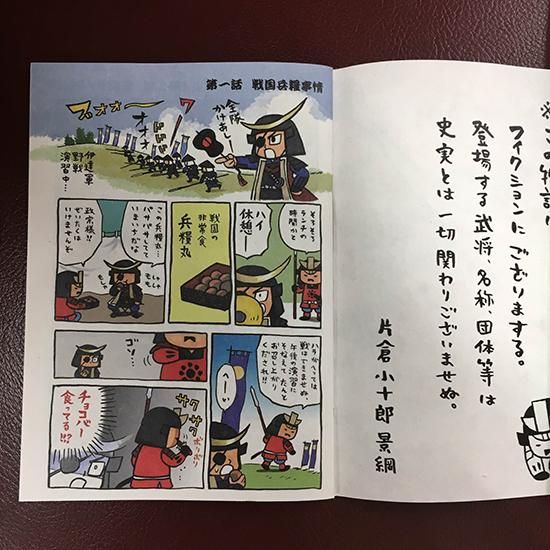 ※この物語は
フィクションにござりまする。
登場する武将、名称、団体等は
史実とは一切関わりございませぬ。
片倉小十郎景綱
第一話 戦国兵糧事情
全隊
かけあしー
ワー
オオオ
ドドド
ブオオー
伊達軍
野戦
演習中…
そろそろ
ランチの
時間かと
ハイ
休憩ー
戦国の
非常食
兵糧丸
この兵糧丸…
パサパサしてて
いまいちだな
もしゃ
もしゃ
政宗様!!
ぜいたくは
いけませんぞ
ハラがへっては
戦はできませぬ。
午後の演習に
そなえて、たんと
お召し上がり
くだされ!!
うーい
ゴソ…
サクサク
ぽりぽり
チョコバー
食ってる!!?